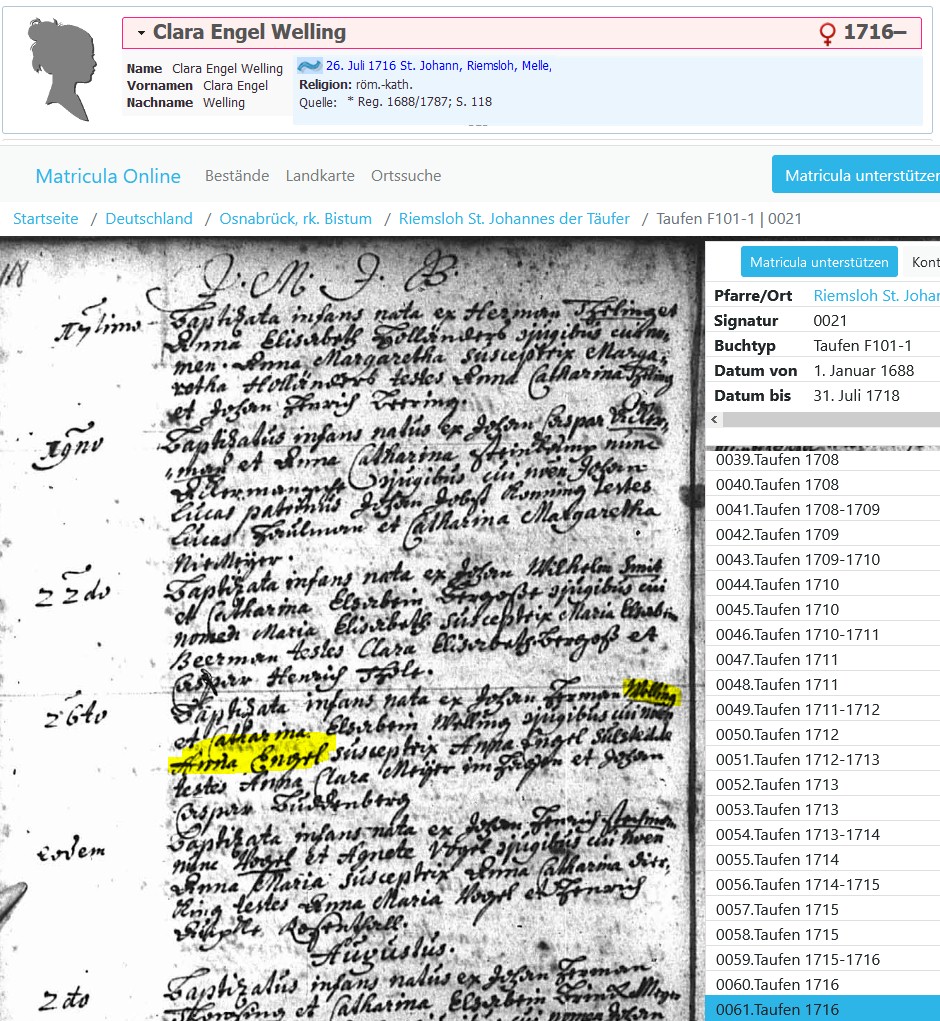 Clara Engel Welling
1716–
Name Clara Engel Welling
Vornamen Clara Engel
Nachname Welling
26. Juli 1716 St. Johann, Riemsloh, Melle,
Religion: röm.-kath.
Quelle: * Reg. 1688/1787; S. 118
Matricula Online Bestände Landkarte Ortssuche
Matricula unterstützen
Startseite / Deutschland / Osnabrück, rk. Bistum / Riemsloh St. Johannes der Täufer / Taufen F101-1 | 0021
118
J. M. J. B.
Baptizata infans nata ex Herman
Anna Elisabeth Holländers
men Anna Margaretha susceptrix Marga,
retha Holländers testes Anna Catharina
et Johan Henrich
Baptizatus infans natus ex Johan Caspar
et Anna Catharina
Johan
Lucas patrinus Johan Jobst testes
Lucas et Catharina Margaretha
NieMeÿer.
22do
Baptizata infans nata ex Johan Wilhelm Smit
et Catharina Elsabein conjugibus cui
nomen Maria Elisabeth susceptrix Maria Elsabein
Beerman testes Clara Elisabeth et
Caspar Henrich
26to
Baptizata infans nata ex Johan Herman Welling
et Catharina Elsabein Welling conjugibus cui nomen
Anna Engel susceptrix Anna Engel
testes Anna Clara Meÿer et Johan
Caspar Buddenberg
eodem
Baptizata infans nata ex Johan Henrich
Vogel et Agnete Vogel conjugibus cui nomen
Anna Maria susceptrix Anna Catharina
testes Anna Maria Vogel et Henrich
Augustus.
2do
Baptizatus infans natus ex Johan Herman
et Catharina Elsabein
Matricula unterstützen Kont
Pfarre/Ort Riemsloh St. Johan
Signatur 0021
Buchtyp Taufen F101-1
Datum von 1. Januar 1688
Datum bis 31. Juli 1718
0039.Taufen 1708
0040.Taufen 1708
0041.Taufen 1708-1709
0042.Taufen 1709
0043.Taufen 1709-1710
0044.Taufen 1710
0045.Taufen 1710
0046.Taufen 1710-1711
0047.Taufen 1711
0048.Taufen 1711
0049.Taufen 1711-1712
0050.Taufen 1712
0051.Taufen 1712-1713
0052.Taufen 1713
0053.Taufen 1713
0054.Taufen 1713-1714
0055.Taufen 1714
0056.Taufen 1714-1715
0057.Taufen 1715
0058.Taufen 1715
0059.Taufen 1715-1716
0060.Taufen 1716
0061.Taufen 1716